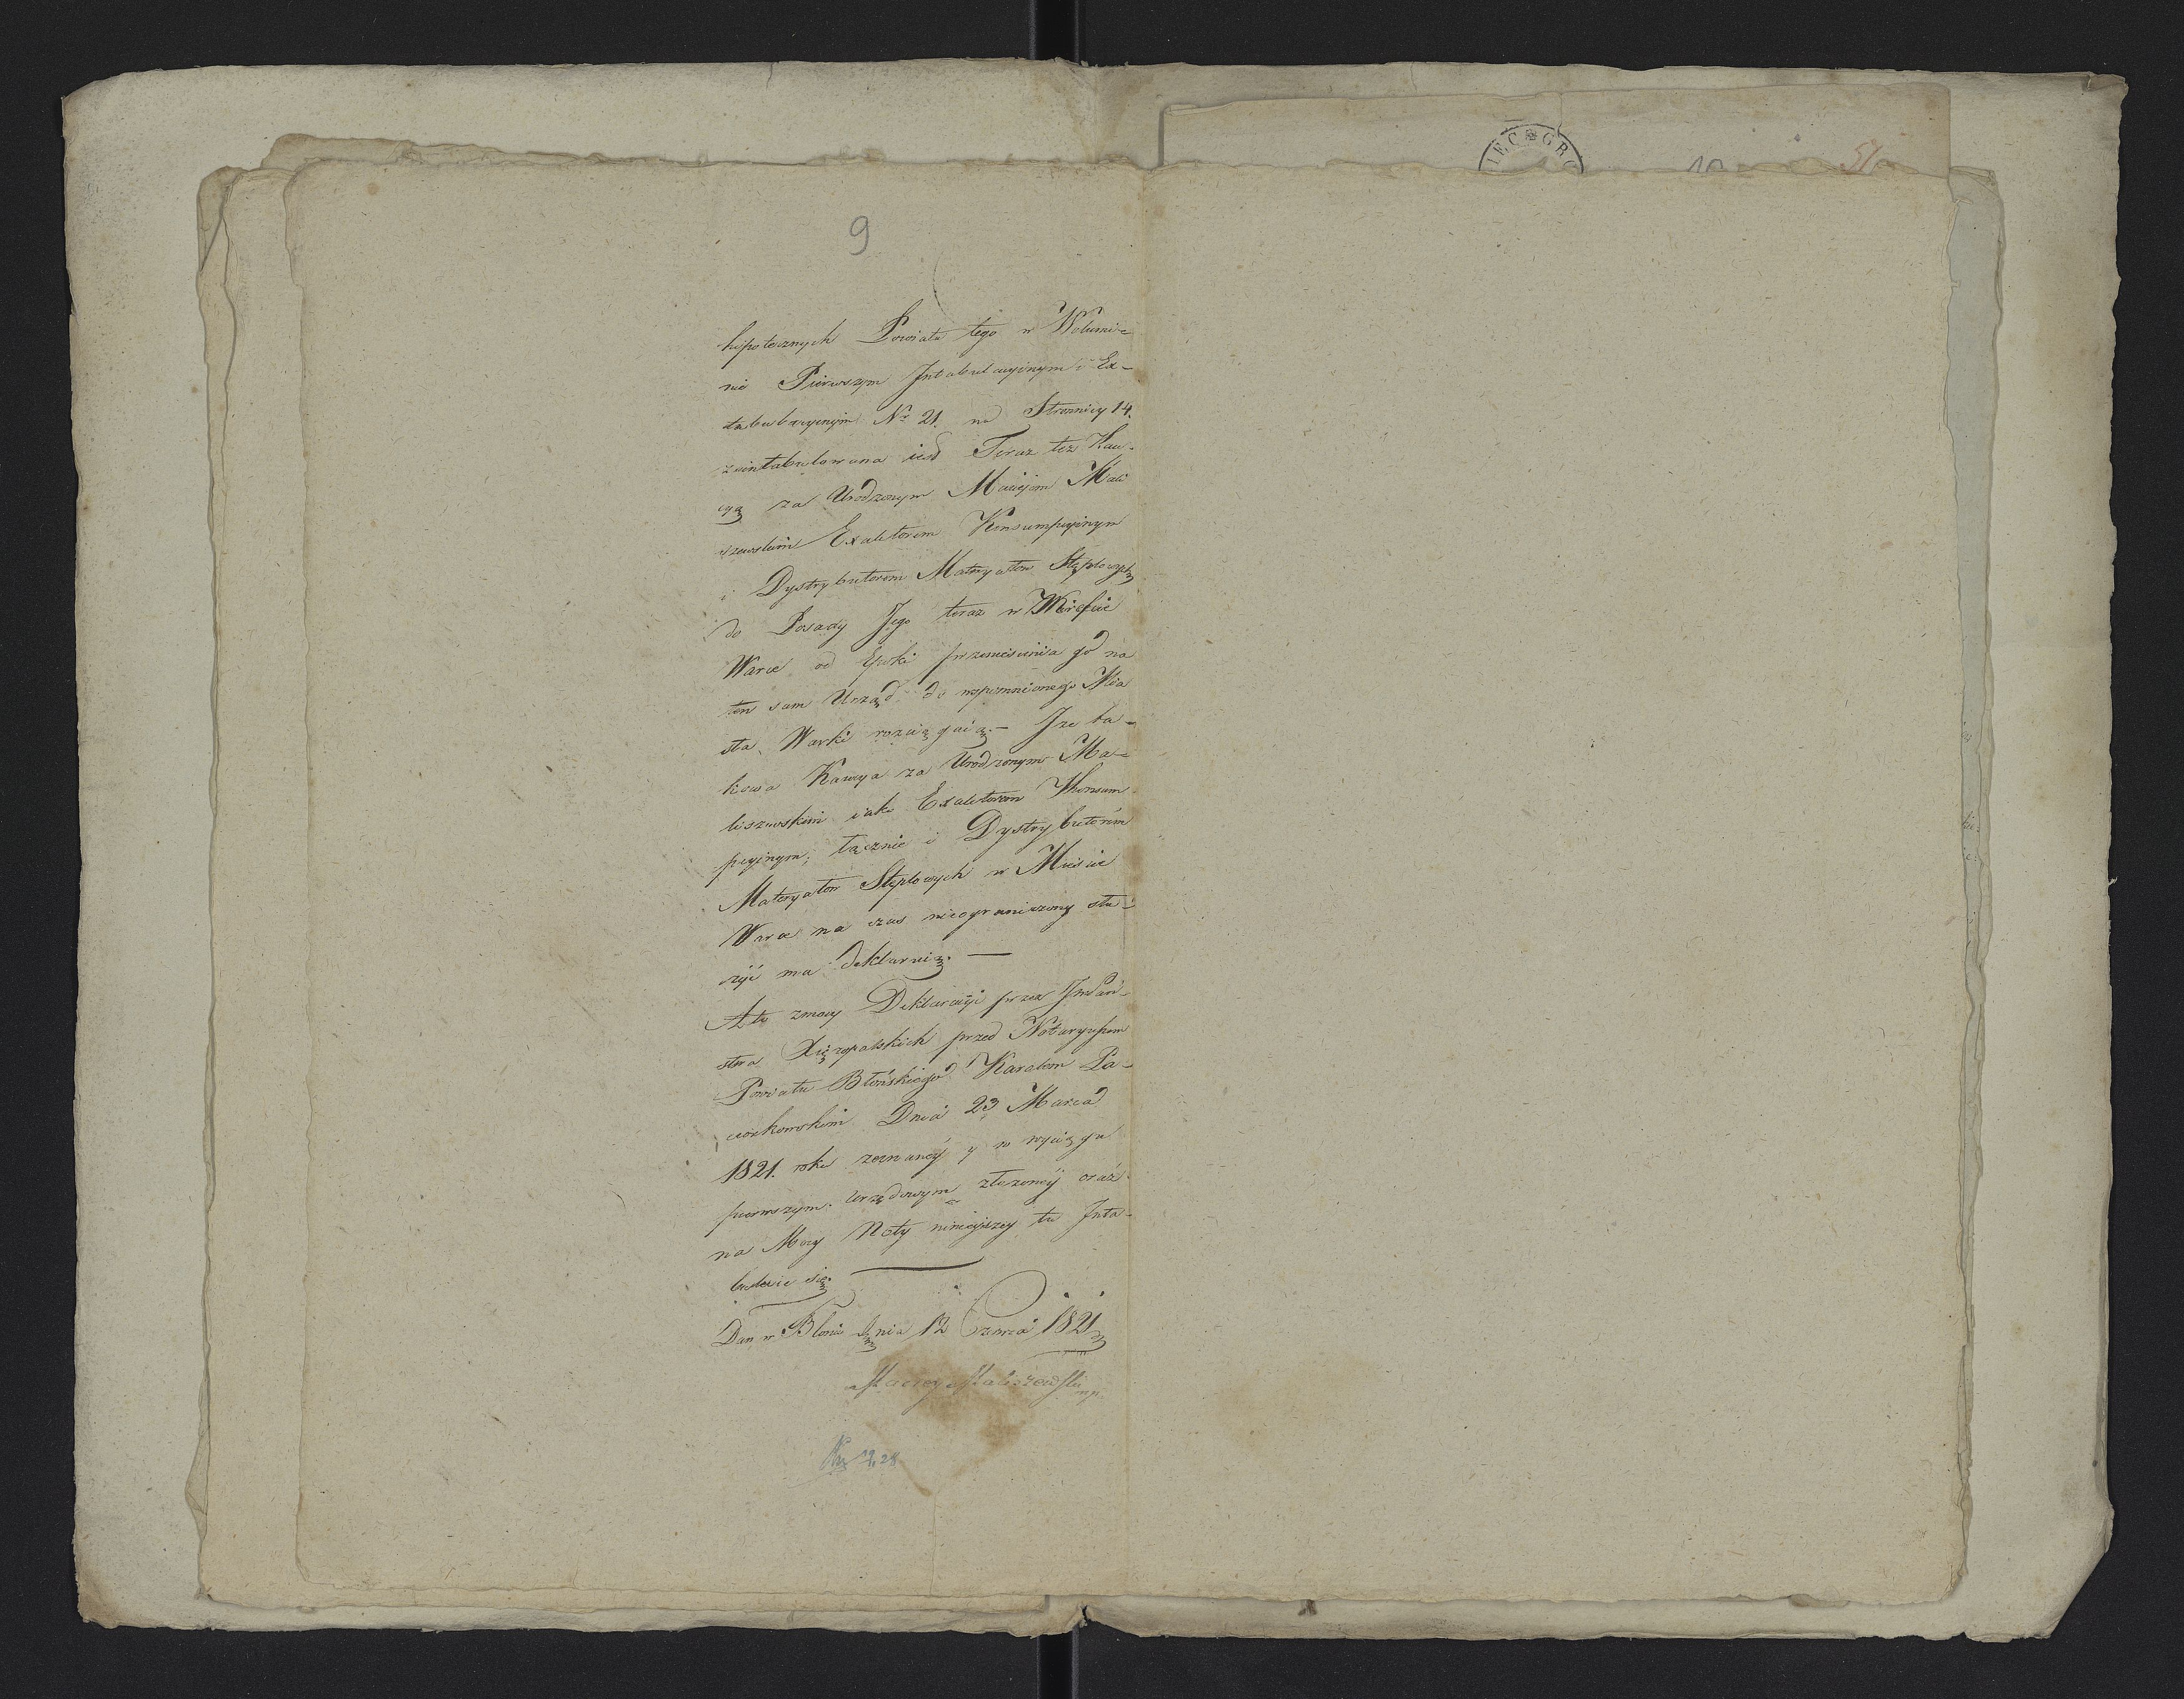 9
hipotecznych Powiatu tego w Wolumi=
nie Pierwszym Intabulacyinym i Ex-
tabulacyinym Nr 21. na Stronnicy 14.
zaintabulowana iest Teraz tez Kau-
cyą za Urodzonym Macieiem Mali
szewskim Exaktorem Konsumpcyinym
i Dystrybutorem Materyałów Stęplowych
do Posady Jego teraz w Mieście
Warce od Epoki przeniesienia go na
ten sam Urząd do wspomnionego Mia
sta Warki rozciągaią.- Ize ta-
kowa Kaucya za Urodzonym Ma=
liszewskim iako Exaktorem Konsum-
pcyinym, łącznie i Dystrybutorem
Materyałów Stęplowych w Mieście
Warce na czas nieograniczony słu-
zyć ma deklaruią. —
A to z mocy Deklaracyi przez
stwa przed Notaryuszem
Powiatu Błońskiego Karolem Pa-
ciorkowskim Dnia 23 Marca
1821. roku zeznanéy y w wyciągu
pierwszym urzędowym złozonéy oraz
na Mocy Noty ninieyszey tu Inta-
buluie się
Dan w Błoniu Dnia 12 Czerwca 1821
Maciey Maliszewski mp.
51